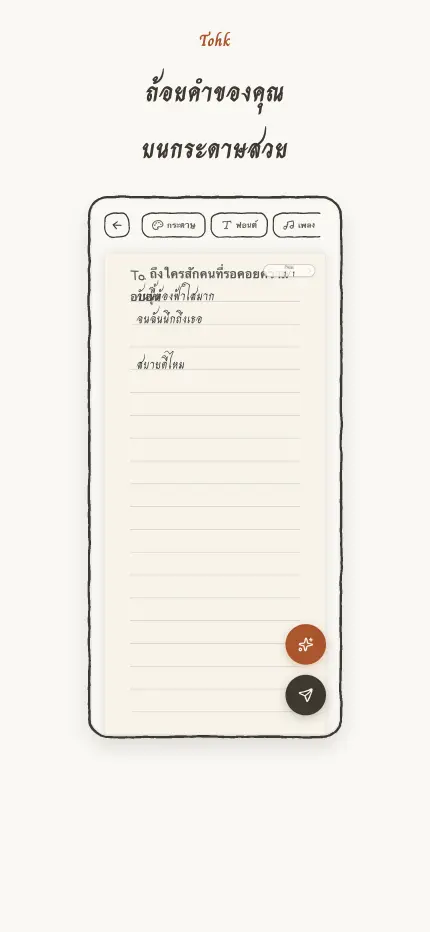 Tohk
ถ้อยคำของคุณ
บนกระดาษสวย
กระดาษ
ฟอนต์
เพลง
To. ถึงใครสักคนที่รอคอย
วันนี้ท้องฟ้าใสมาก
จนฉันนึกถึงเธอ
สบายดีไหม